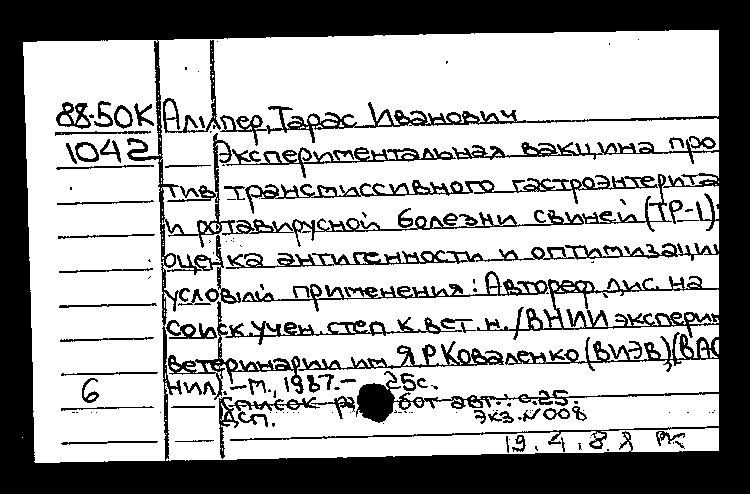 88-50К Алипер, Тарас Иванович
1042 Экспериментальная вакцина про
тив трансмиссивного гастроэнтерита
и ротавирусной болезни свиней (ТР-1):
оценка антигенности и оптимизации
условий применения: Автореф. дис. на
соиск. учен. степ. к. вет. н. / ВНИИ эксперим
ветеринарии им. Я Р Коваленко (ВИЭВ), (ВАС
6 НИЛ). - М., 1987. - 25с.
список работ авт.: с.25.
ДСП. экз. №008
19.4.88 РК